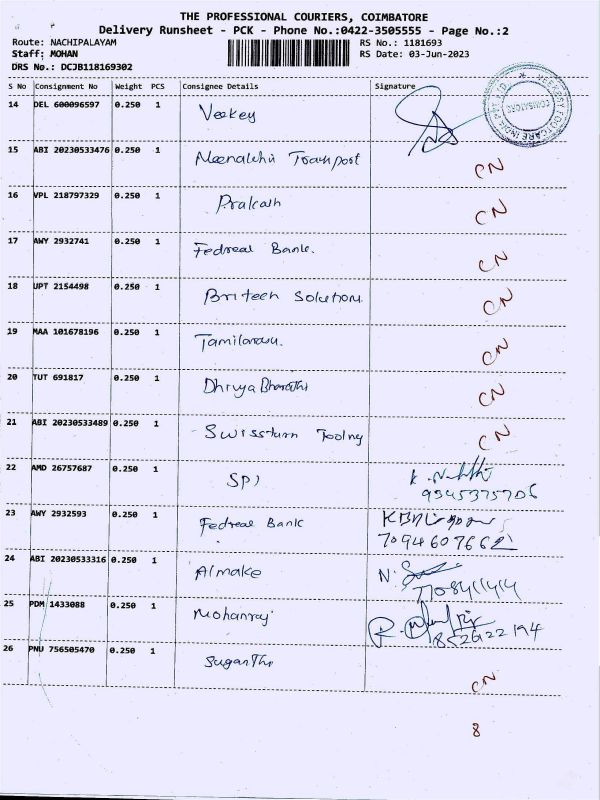 THE PROFESSIONAL COURIERS, COIMBATORE
Delivery Runsheet - PCK - Phone No.:0422-3505555 - Page No.:2
Route: NACHIPALAYAM RS No.: 1181693
Staff: MOHAN RS Date: 03-Jun-2023
DRS No.: DCJB118169302
S No Consignment No Weight PCS Consignee Details Signature
14 DEL 600096597 0.250 1 Veekey
15 ABI 20230533476 0.250 1 Meenakshi Transport CN
16 VPL 218797329 0.250 1 Prakash CN
17 AWY 2932741 0.250 1 Fedreal Bank. CN
18 UPT 2154498 0.250 1 Britech Solutions CN
19 MAA 101678196 0.250 1 CN
20 TUT 691817 0.250 1 Dhivya Bharathi CN
21 ABI 20230533489 0.250 1 Swissturn Tooling CN
22 AMD 26757687 0.250 1 SPI
23 AWY 2932593 0.250 1 Fedreal Bank
7094607662
24 ABI 20230533316 0.250 1 Almake
25 PDM 1433088 0.250 1 Mohanraj
8526122194
26 PNU 756505470 0.250 1 Suganthi CN
8